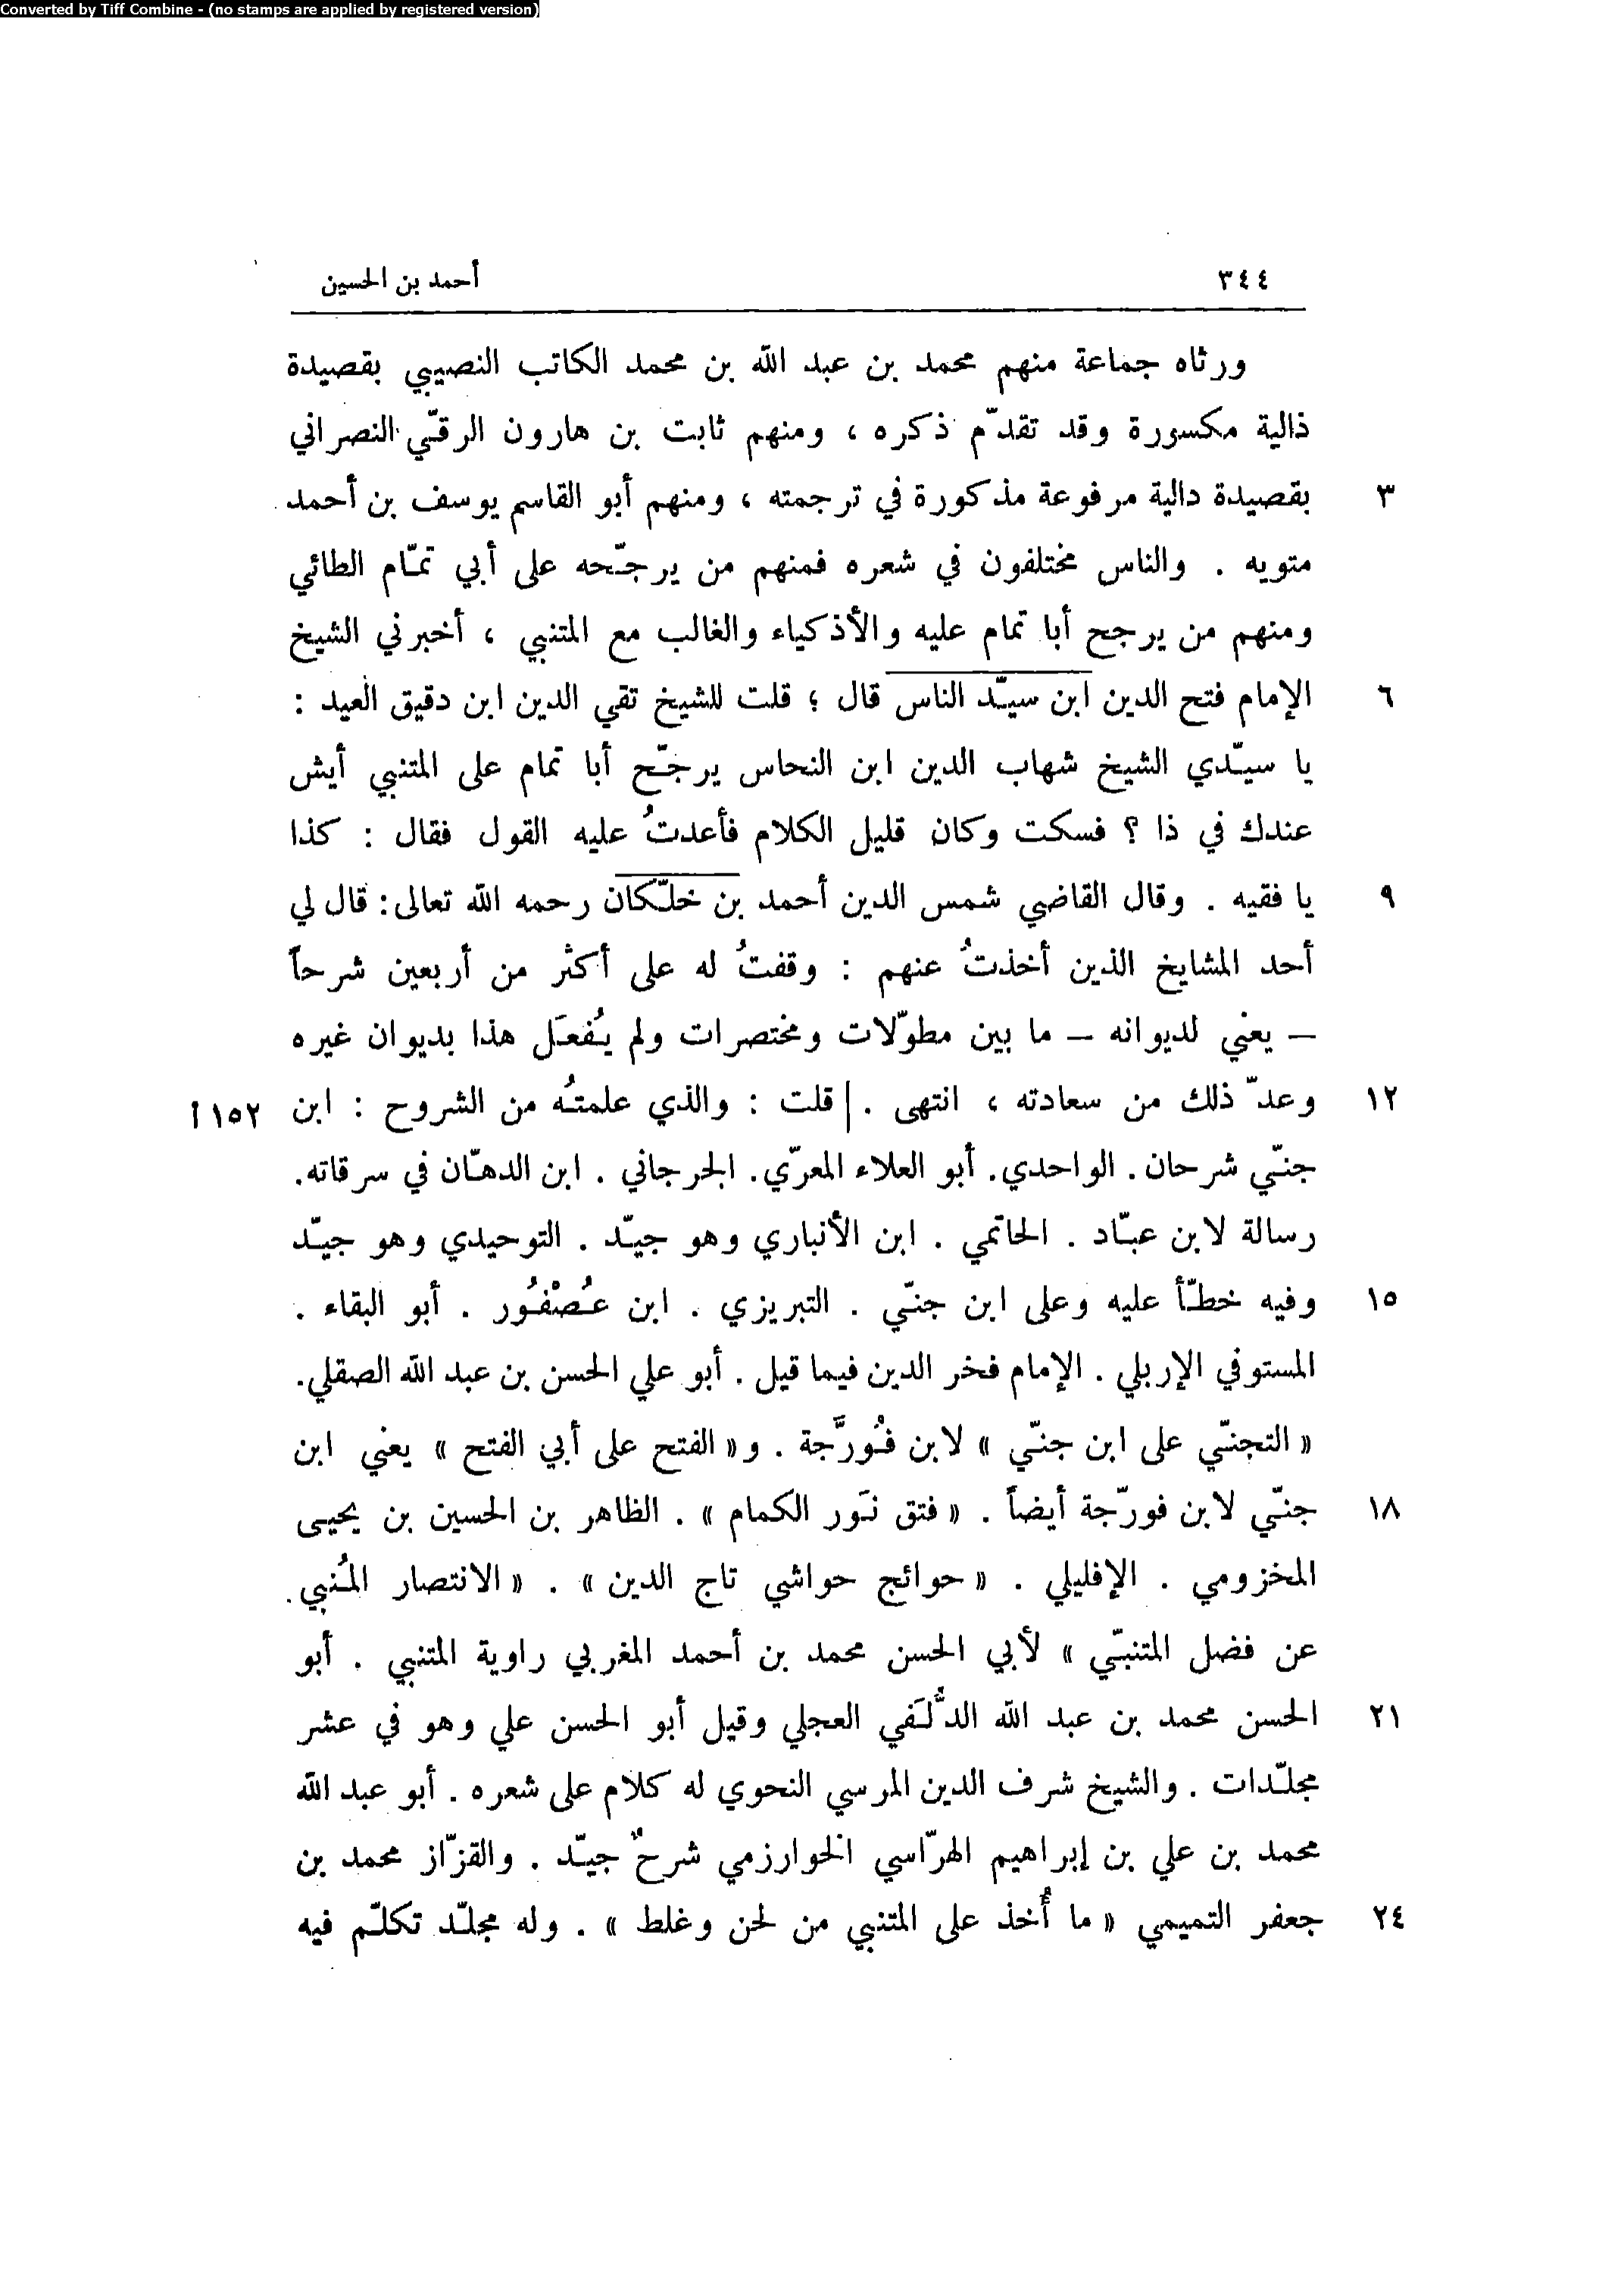 Converted by Tiff Combine - (no stamps are applied by registered version)
٣٤٤ أحمد بن الحسين
ورثاه جماعة منهم محمد بن عبد الله بن محمد الكاتب النصيبي بقصيدة
ذالية مكسورة وقد تقدّم ذكره ، ومنهم ثابت بن هارون الرقّي النصراني
٣ بقصيدة دالية مرفوعة مذكورة في ترجمته ، ومنهم أبو القاسم يوسف بن أحمد
متويه . والناس مختلفون في شعره فمنهم من يرجّحه على أبي تمّام الطائي
ومنهم من يرجح أبا تمام عليه والأذكياء والغالب مع المتنبي ، أخبرني الشيخ
٦ الإمام فتح الدين ابن سيّد الناس قال ؛ قلت للشيخ تقي الدين ابن دقيق العيد :
يا سيّدي الشيخ شهاب الدين ابن النحاس يرجّح أبا تمام على المتنبي أيش
عندك في ذا ؟ فسكت وكان قليل الكلام فأعدتُ عليه القول فقال : كذا
٩ يا فقيه . وقال القاضي شمس الدين أحمد بن خلّكان رحمه الله تعالى: قال لي
أحد المشايخ الذين أخذتُ عنهم : وقفتُ له على أكثر من أربعين شرحاً
– يعني لديوانه – ما بين مطوّلات ومختصرات ولم يُفعَل هذا بديوان غيره
١٢ وعدّ ذلك من سعادته ، انتهى . | قلت : والذي علمتُه من الشروح : ابن ١٥٢ أ
جنّي شرحان . الواحدي. أبو العلاء المعرّي. الجرجاني . ابن الدهّان في سرقاته.
رسالة لابن عبّاد . الحاتمي . ابن الأنباري وهو جيّد . التوحيدي وهو جيّد
١٥ وفيه خطّأ عليه وعلى ابن جنّي . التبريزي . ابن عُصْفُور . أبو البقاء .
المستوفي الإربلي . الإمام فخر الدين فيما قيل . أبو علي الحسن بن عبد الله الصقلي.
« التجنّي على ابن جنّي » لابن فُورَّجة . و« الفتح على أبي الفتح » يعني ابن
١٨ جنّي لابن فورّجة أيضاً . « فتق نَور الكمام » . الظاهر بن الحسين بن يحيى
المخزومي . الإفليلي . « حوائج حواشي تاج الدين » . « الانتصار المُنبي.
عن فضل المتنبّي » لأبي الحسن محمد بن أحمد المغربي راوية المتنبي . أبو
٢١ الحسن محمد بن عبد الله الدُّلَفي العجلي وقيل أبو الحسن علي وهو في عشر
مجلّدات . والشيخ شرف الدين المرسي النحوي له كلام على شعره . أبو عبد الله
محمد بن علي بن إبراهيم الهرّاسي الخوارزمي شرحٌ جيّد . والقزّاز محمد بن
٢٤ جعفر التميمي « ما أُخذ على المتنبي من لحن وغلط » . وله مجلّد تكلّم فيه